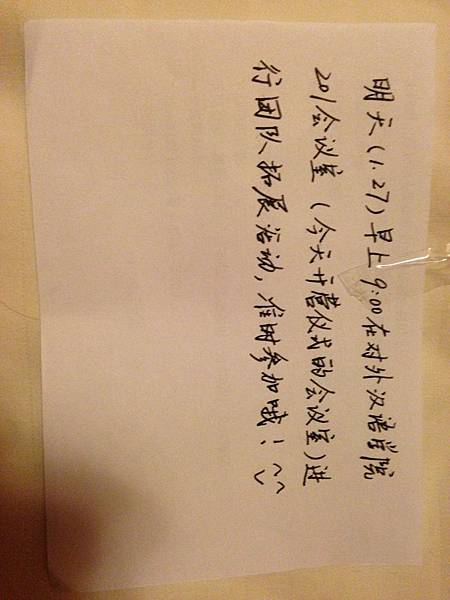 明天(1.27)早上9:00在对外汉语学院
201会议室(今天开营仪式的会议室)进
行团队拓展活动,准时参加哦!^_^